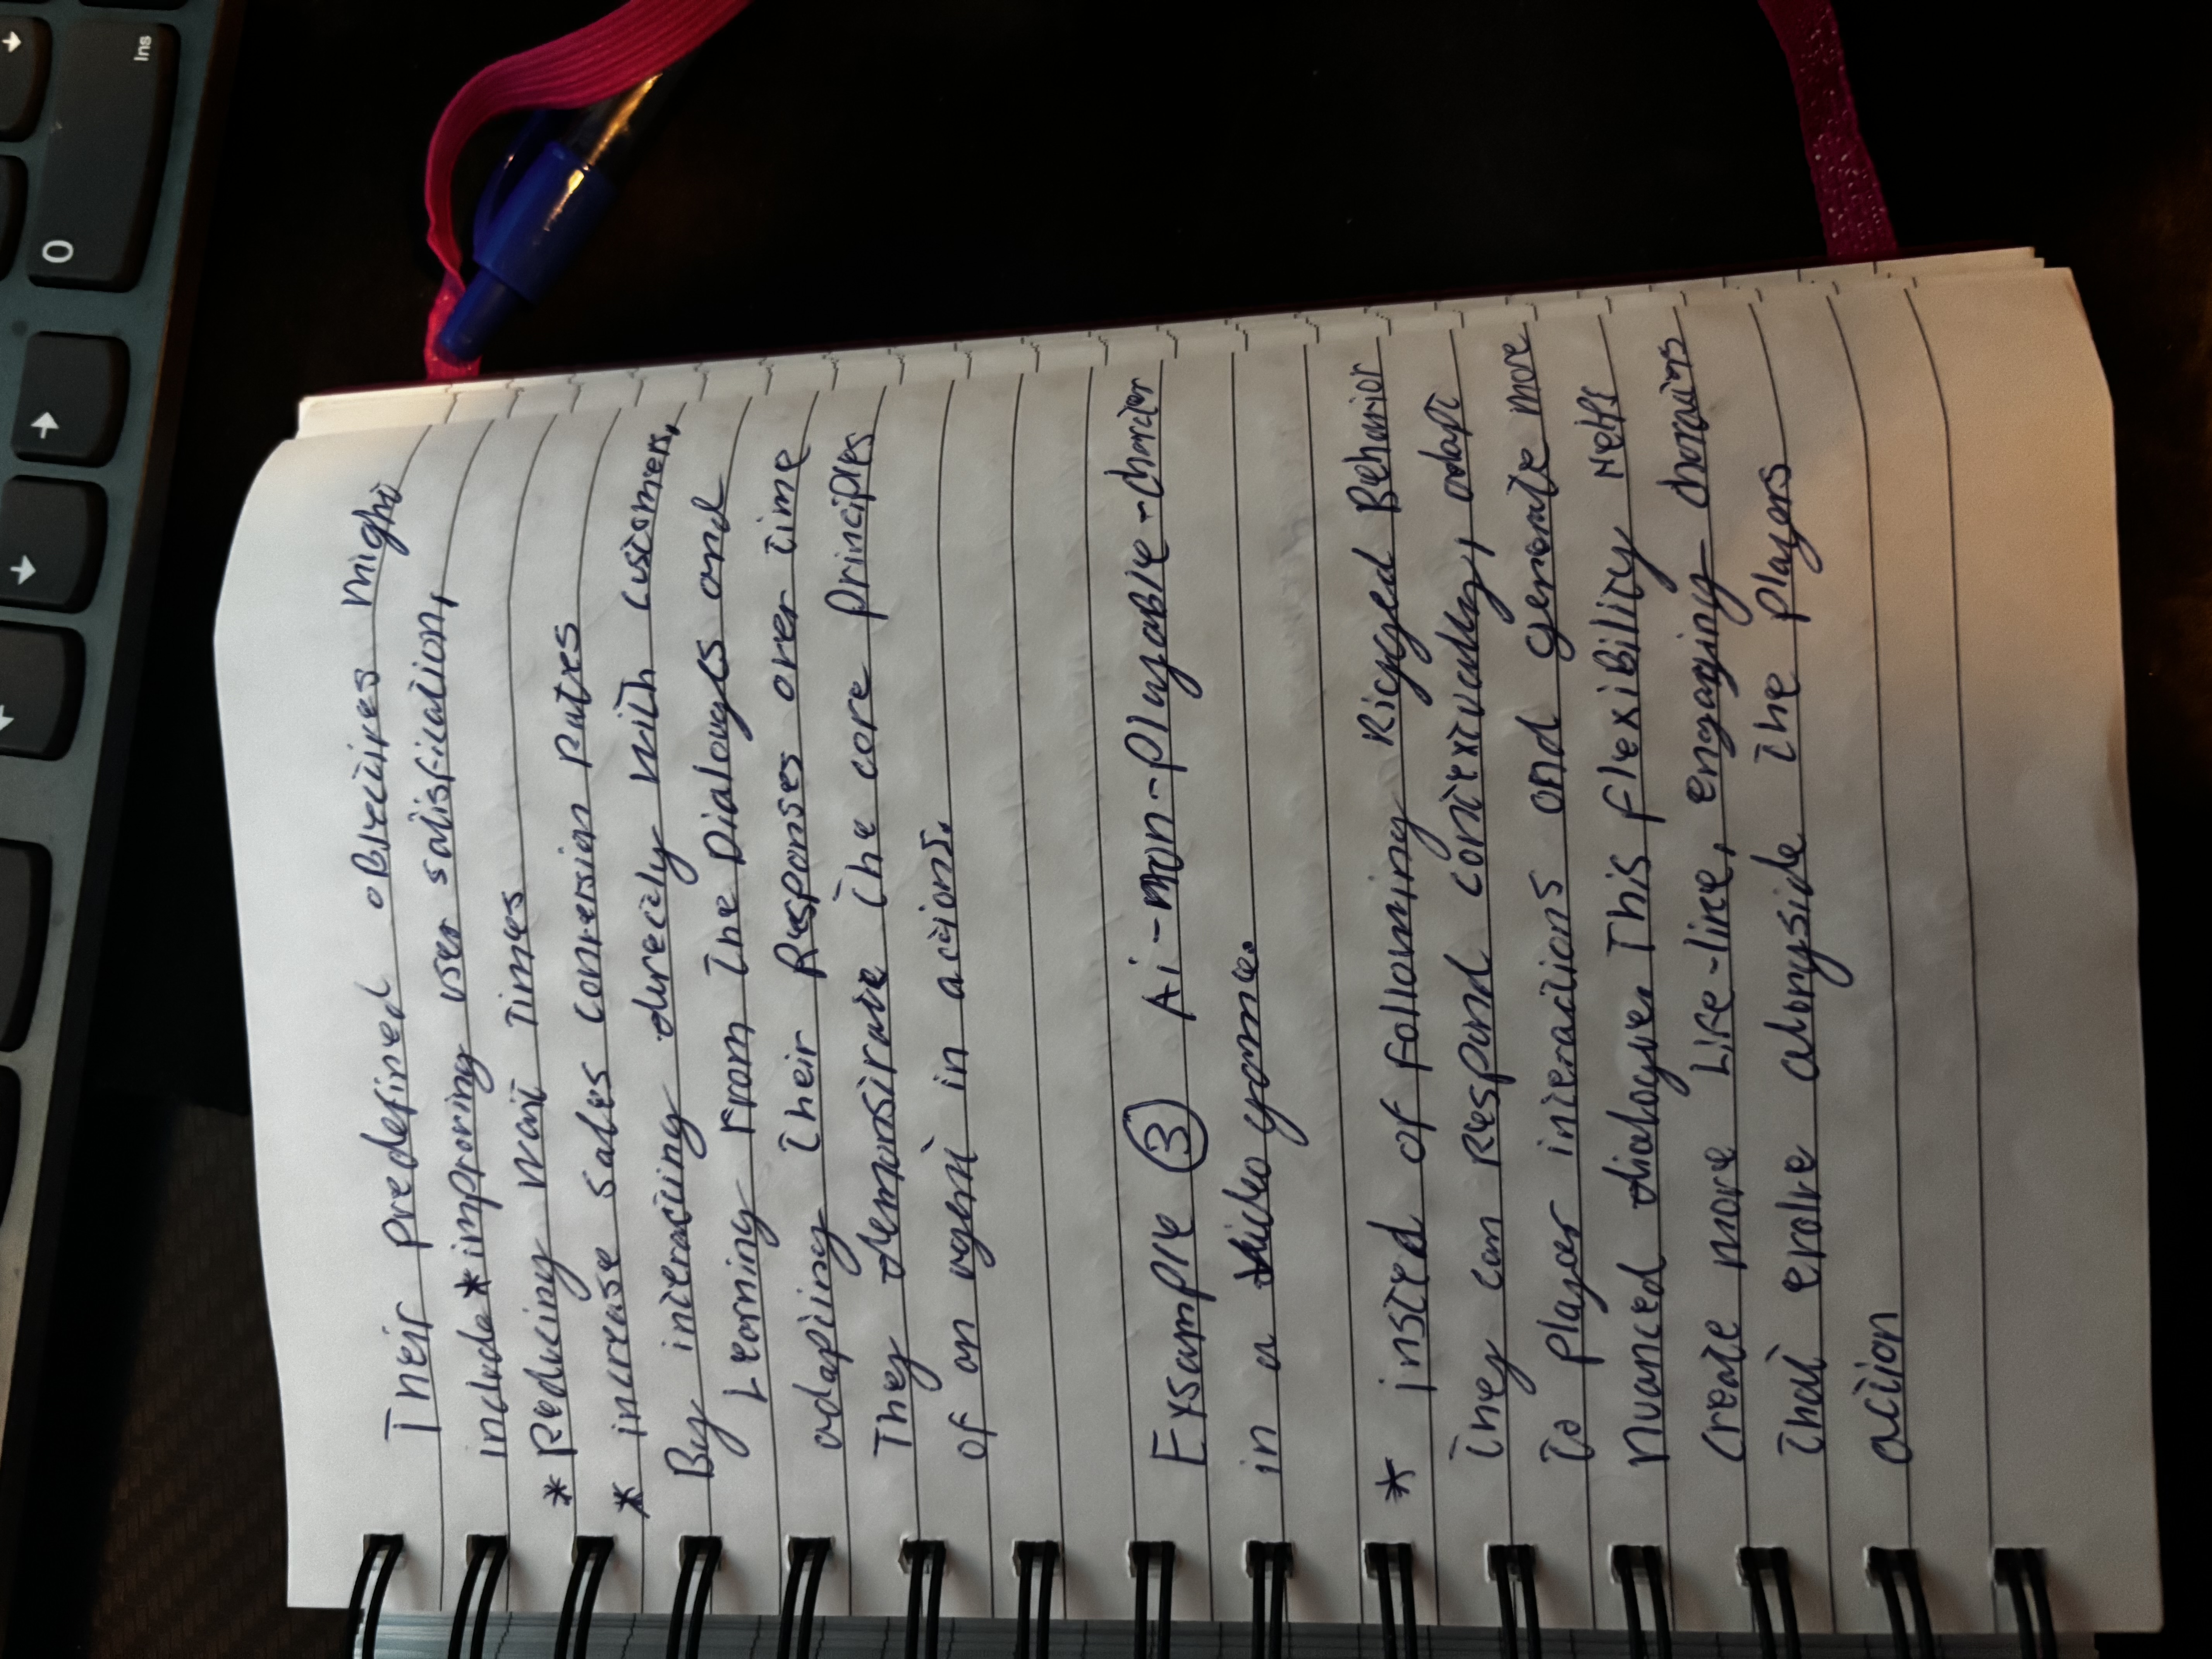 0
Ins
Their predefined objectives might
include * improving user satisfication,
* Reducing wait Times
* increase sales conversion Rates
By interacting directly with customers,
Learning From The Dialouges and
adapting Their Responses over time
They demonstrate the core principles
of an agent in actions.
Exsample 3 Ai-non-playable-charcter
in a video game.
* insted of Following Rigged Behavior
They can Respond contextually, adapt
to player interactions and generate more
nuanced dialogue. This flexibility Helps
create more Life-like, engaging
That evolve alongside the players
action